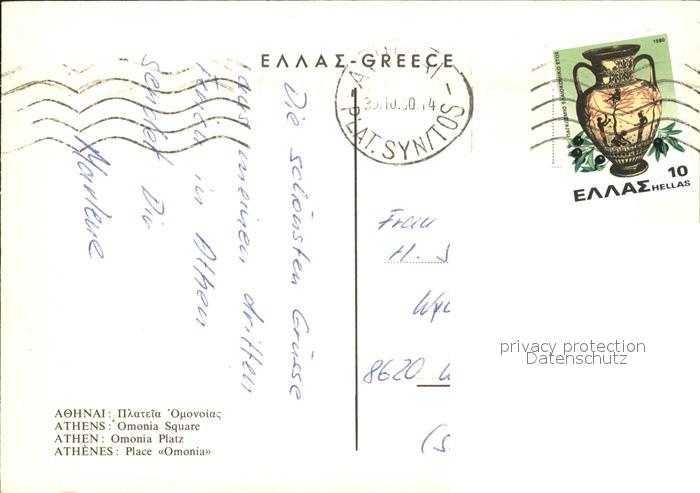 ΕΛΛΑΣ-GREECE
30.10.80.14
PLAT. SYN/TOS
1980
ΕΛΛΑΣ HELLAS 10
Die schönsten Grüsse
aus meinen dritten
Ferien in Athen
sendet Dir
Marlene
Frau
H. S
8620
privacy protection
Datenschutz
ΑΘΗΝΑΙ: Πλατεῖα Ὁμονοίας
ATHENS: Omonia Square
ATHEN: Omonia Platz
ATHÈNES: Place «Omonia»